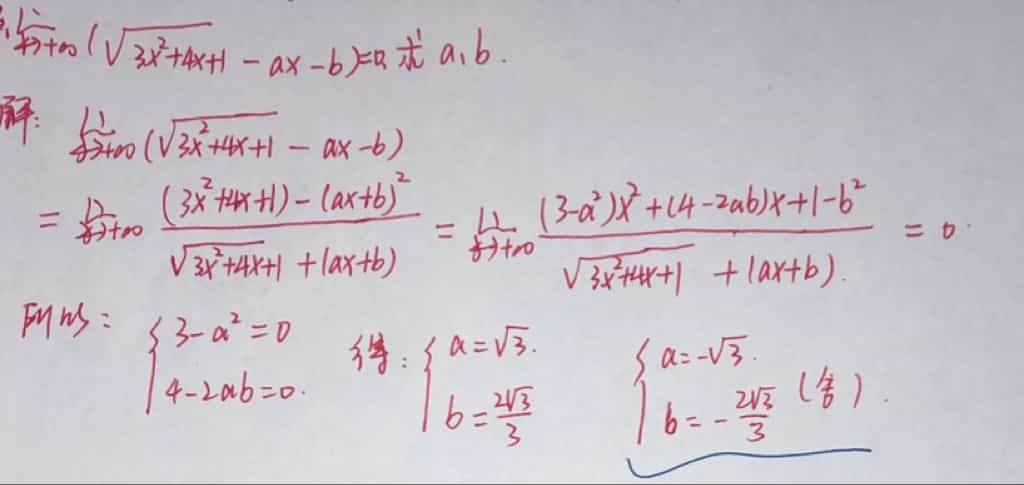 lim x→+∞ (√(3x²+4x+1) - ax - b)=0 求 a,b.
解: lim x→+∞ (√(3x²+4x+1) - ax - b)
= lim x→+∞ ((3x²+4x+1) - (ax+b)²)/(√(3x²+4x+1) + (ax+b)) = lim x→+∞ ((3-a²)x²+(4-2ab)x+1-b²)/(√(3x²+4x+1) + (ax+b)). = 0.
所以: { 3-a²=0 得: { a=√3. { a=-√3.
4-2ab=0. b=2√3/3 b=-2√3/3 (舍).